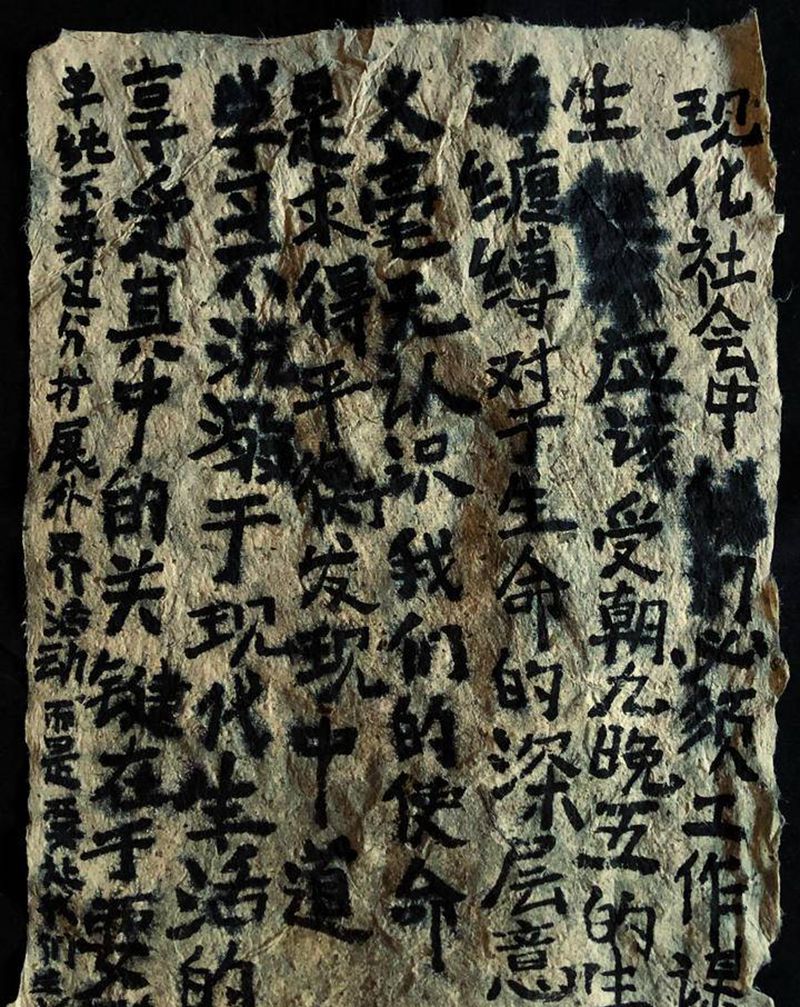 现化社会中 们必须工作谋
生 应该受朝九晚五的生
活缠缚对于生命的深层意
义毫无认识我们的使命
是求得平衡发现中道
学习不沉溺于现代生活的
享受其中的关键在于要
单纯不要过分扩展外界活动而是要